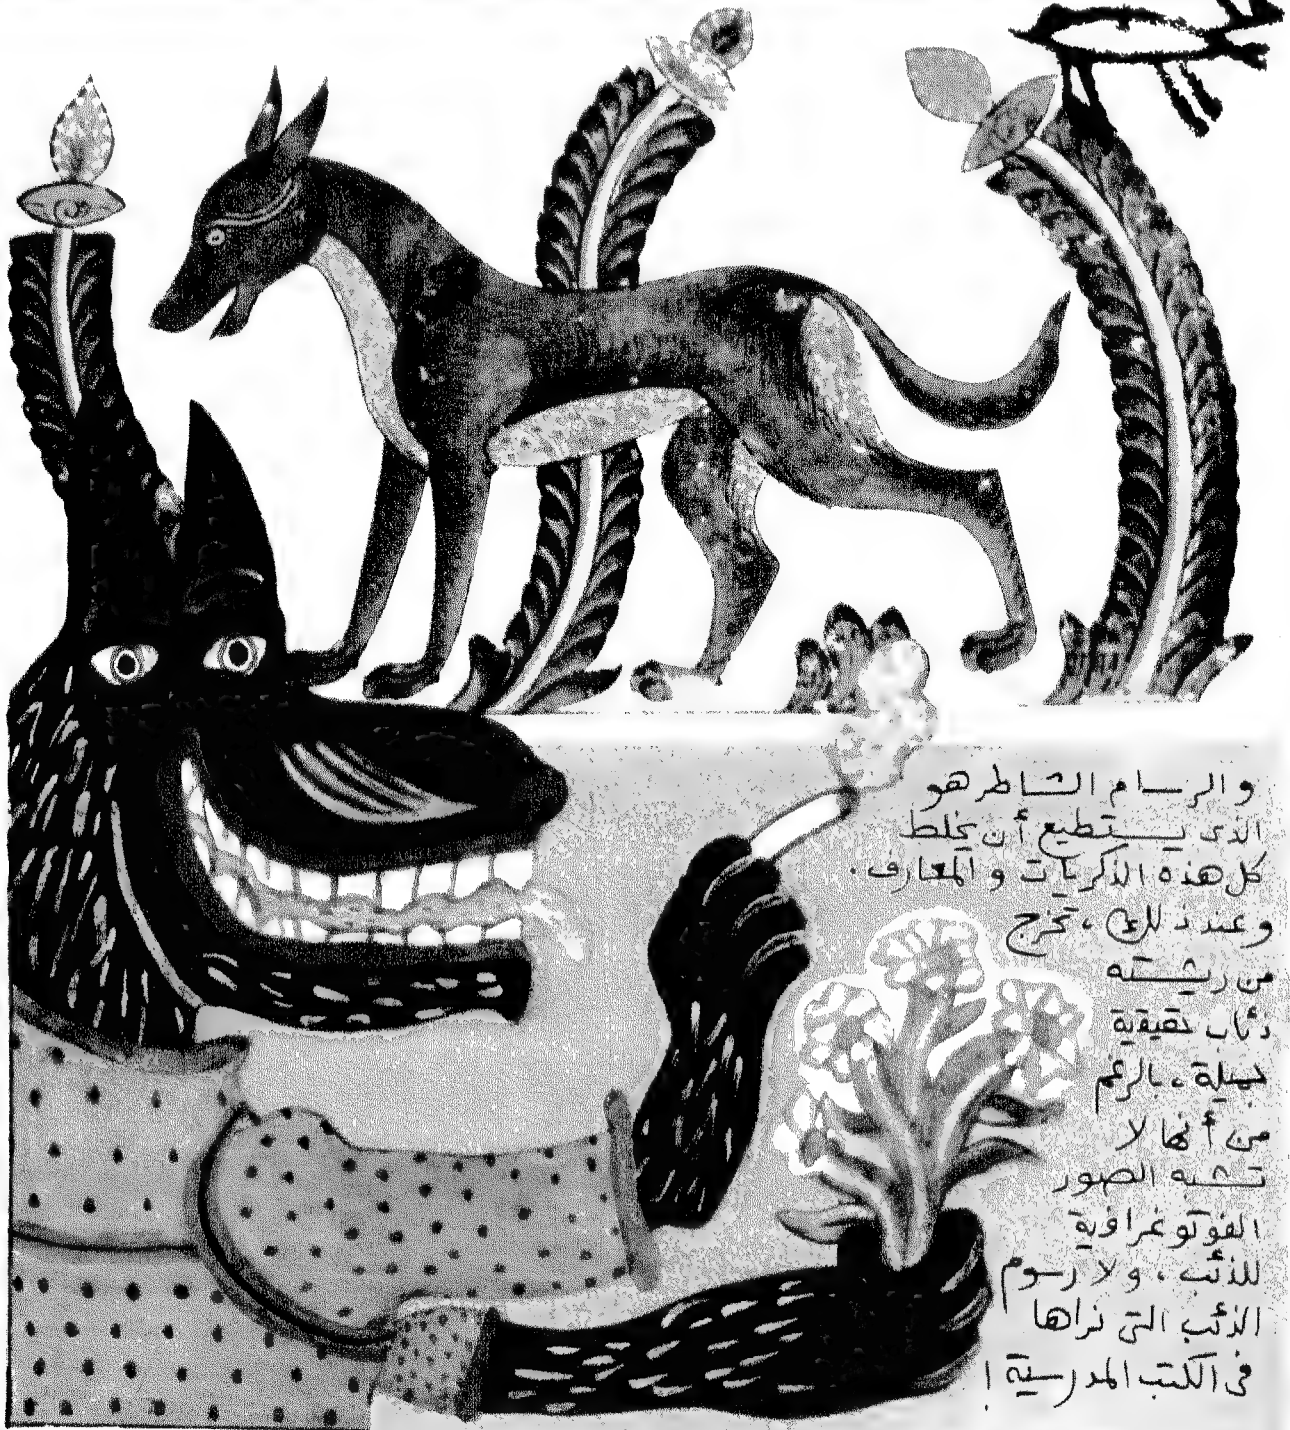 والرسام الشاطر هو
الذى يستطيع أن يخلط
كل هذه الذكريات و المعارف .
وعندذلك ، تخرج
من ريشته
ذئاب حقيقية
جميلة ، بالرغم
من أنها لا
تشبه الصور
الفوتوغرافية
للذئب ، ولا رسوم
الذئب التى نراها
فى الكتب المدرسية !